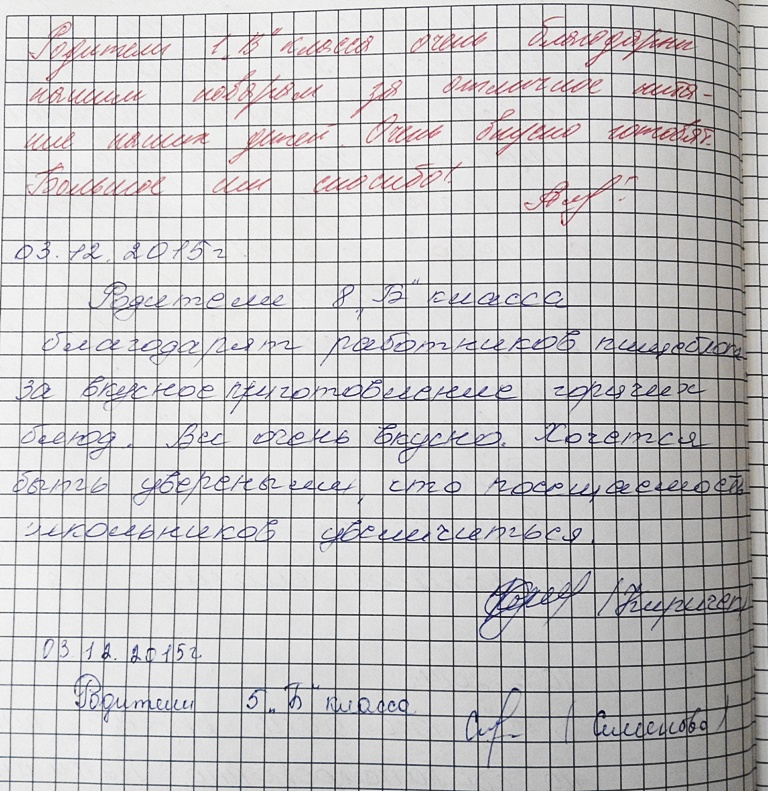 Родители 1 „В" класса очень благодарны
нашим поварам за отличное пита-
ние наших детей Очень вкусно готовят.
Большое им спасибо!
03.12.2015г
Родители 8 „Б" класса
благодарят работников пищеблока
за вкусное приготовление горячих
блюд. Все очень вкусно. Хочется
быть уверенными, что посещаемость
школьников увеличиться.
/Киричен
03.12.2015г
Родители 5 „Б" класса
/ Семенова /